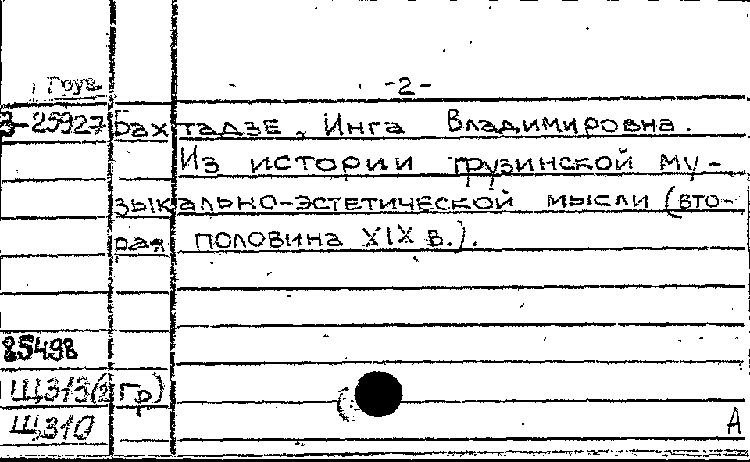 Груз.
-2-
3-25927 Бахтадзе, Инга Владимировна.
Из истории грузинской му-
зыкально-эстетической мысли (вто-
рая половина XIX в.).
85498
Щ313(2гр)
Щ310
А